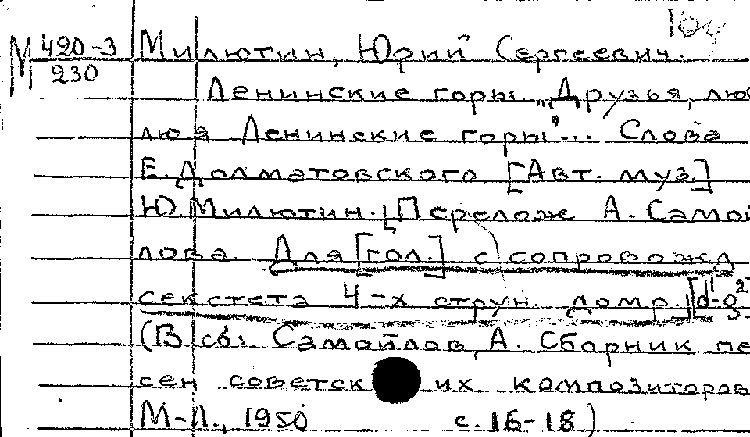 М 420-3/230 Милютин, Юрий Сергеевич.
Ленинские горы „Друзья, лю
лю Ленинские горы"... Слова
Е. Долматовского [Авт. муз.]
Ю. Милютин. [Перелож А. Самой
лова. Для [гол.] с сопровожд
секстета 4-х струн. домр.] [d¹-g²
(В сб.: Самойлов, А. Сборник пе
сен советских композиторов
М-Л., 1950 с. 16-18)